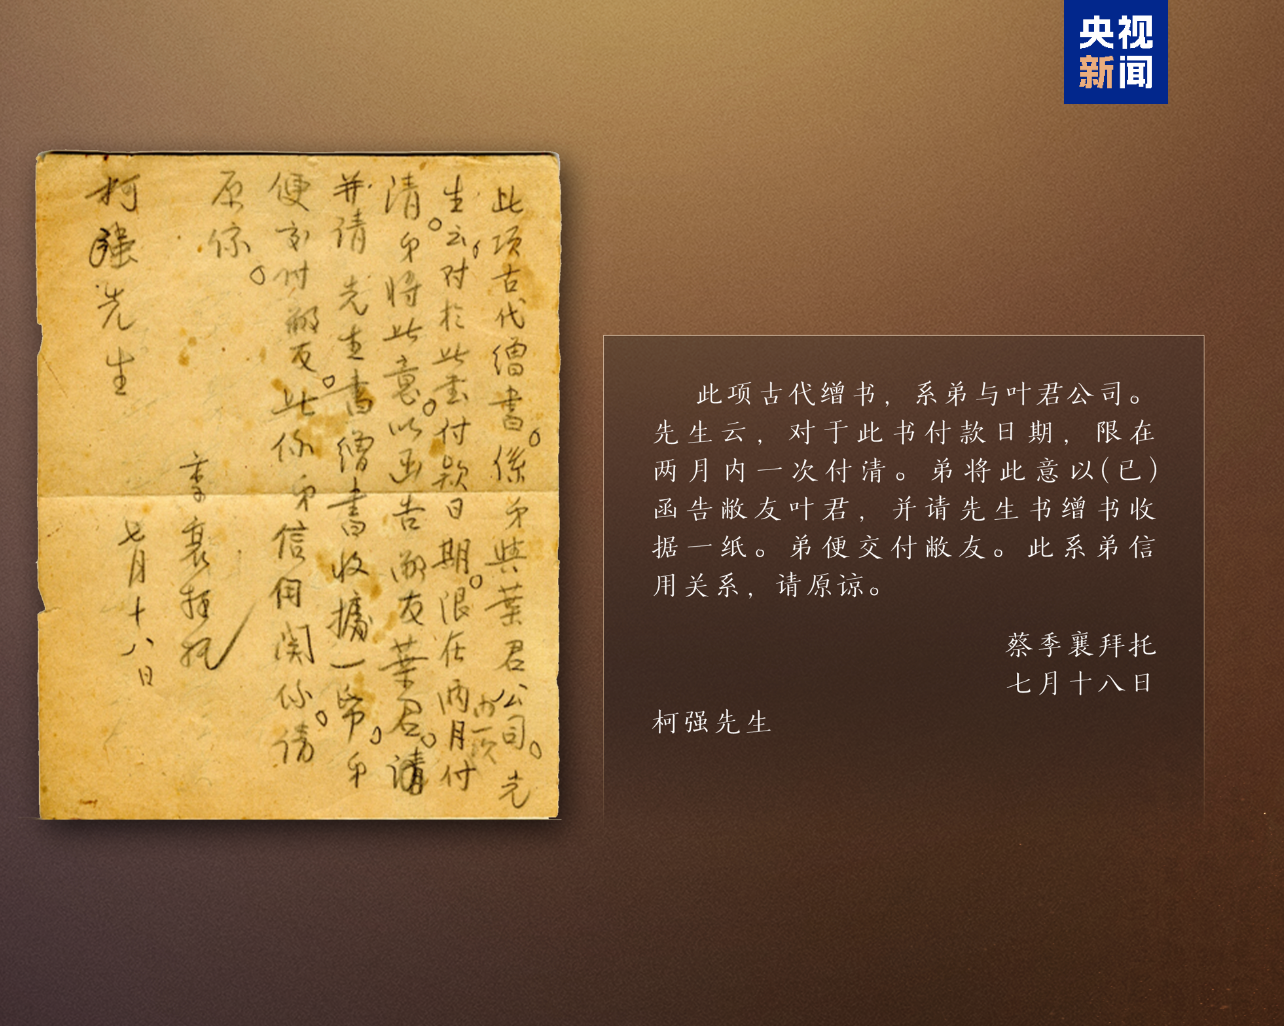 央视
新闻
此项古代缯書。係弟與葉君公司。先
生云，对於此書付款日期。限在两月内一次付
清。弟将此意以函告敝友葉君。請
并请先生書缯書收據一帋。弟
便交付敝友。此係弟信用関係。请
原谅。
季襄拜托
七月十八日
柯强先生
此项古代缯书，系弟与叶君公司。
先生云，对于此书付款日期，限在
两月内一次付清。弟将此意以(已)
函告敝友叶君，并请先生书缯书收
据一纸。弟便交付敝友。此系弟信
用关系，请原谅。
蔡季襄拜托
七月十八日
柯强先生